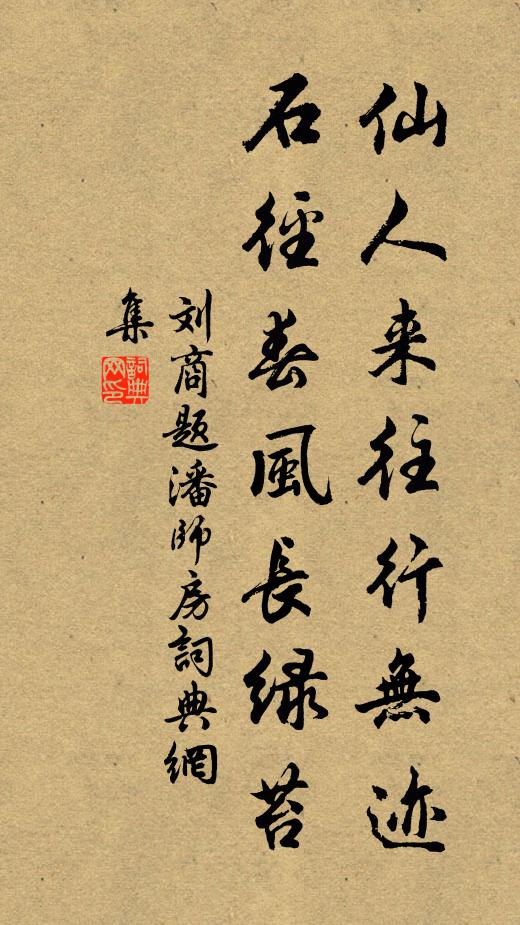 仙人来往行無迹
石徑春風長绿苔
刘商题潘師房詞典網
集
詞典网印